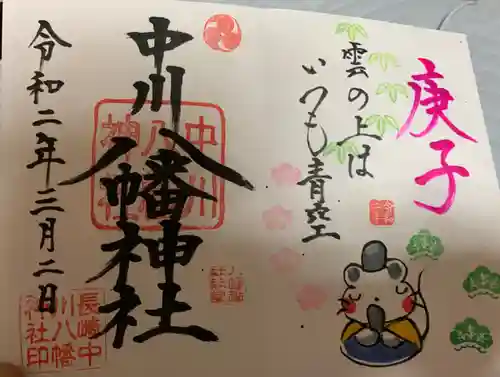 庚子
雲の上は
いつも青空
中川八幡神社
令和二年三月二日
中川
八幡
神社
長崎中
川八幡
神社印